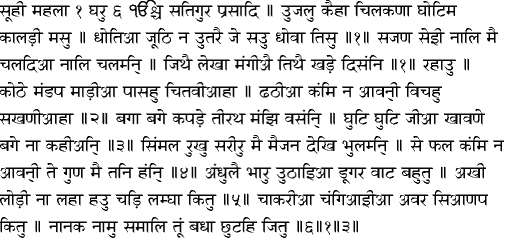 सूही महला १ घरु ६ ੴ सतिगुर प्रसादि ॥ उजलु कैहा चिलकणा घोटिम
कालड़ी मसु ॥ धोतिआ जूठि न उतरै जे सउ धोवा तिसु ॥१॥ सजण सेई नालि मै
चलदिआ नालि चलमनि॒ ॥ जिथै लेखा मंगीऐ तिथै खड़े दिसंनि ॥१॥ रहाउ ॥
कोठे मंडप माड़ीआ पासहु चितवीआहा ॥ ढठीआ कंमि न आवनी॒ विचहु
सखणीआहा ॥२॥ बगा बगे कपड़े तीरथ मंझि वसंनि॒ ॥ घुटि घुटि जीआ खावणे
बगे ना कहीअनि॒ ॥३॥ सिंमल रुखु सरीरु मै मैजन देखि भुलमनि॒ ॥ से फल कंमि न
आवनी॒ ते गुण मै तनि हंनि॒ ॥४॥ अंधुलै भारु उठाइआ डूगर वाट बहुतु ॥ अखी
लोड़ी ना लहा हउ चड़ि लम्घा कितु ॥५॥ चाकरीआ चंगिआईआ अवर सिआणप
कितु ॥ नानक नामु समालि तूं बधा छुटहि जितु ॥६॥१॥३॥